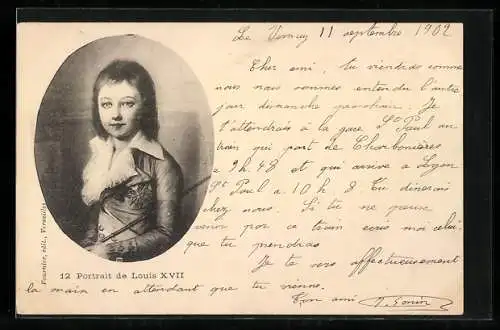 Le Vernay 11 septembre 1902
Cher ami, tu viendras comme
nous nous sommes entendu l'autre
jour dimanche prochain. Je
t'attendrais à la gare de St Paul au
train qui part de Charbonnières
a 9h.48 et qui arrive a Lyon
St Paul a 10 h 8 Tu dinerais
chez nous. Si tu ne peux
venir par ce train ecris moi celui
que tu prendras
Je te serre affectueusement
la main en attendant que tu vienne.
Ton ami
12 Portrait de Louis XVII
Fournier, édit., Versailles